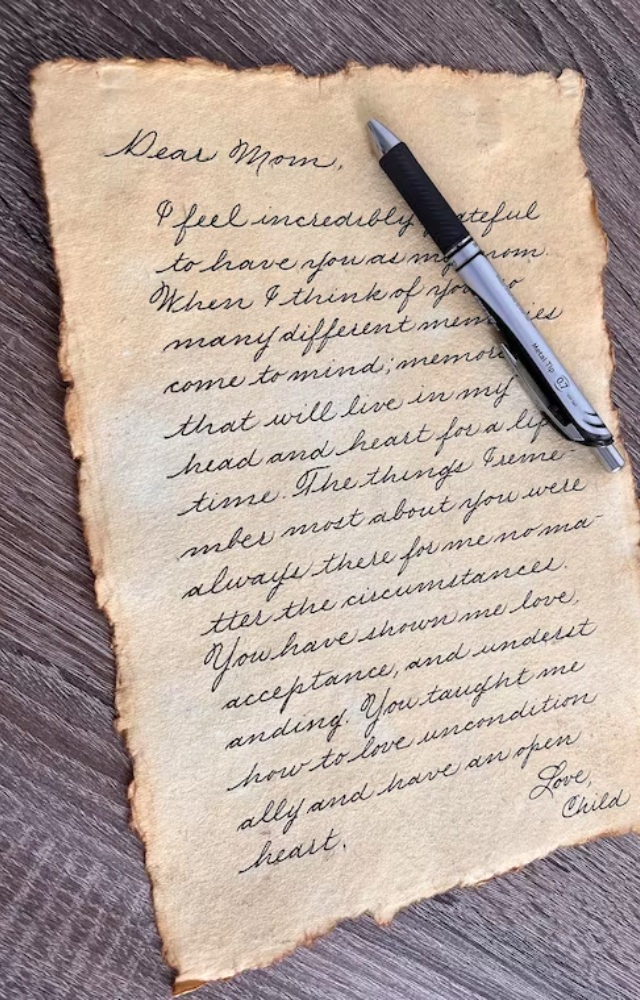 Dear Mom,
I feel incredibly grateful
to have you as my mom.
When I think of you so
many different memories
come to mind; memor
that will live in my
head and heart for a life
time. The things I reme-
mber most about you were
always there for me no ma-
tter the circumstances.
You have shown me love,
acceptance, and underst
anding. You taught me
how to love uncondition
ally and have an open
heart.
Love,
Child
Metal Tip 0.7